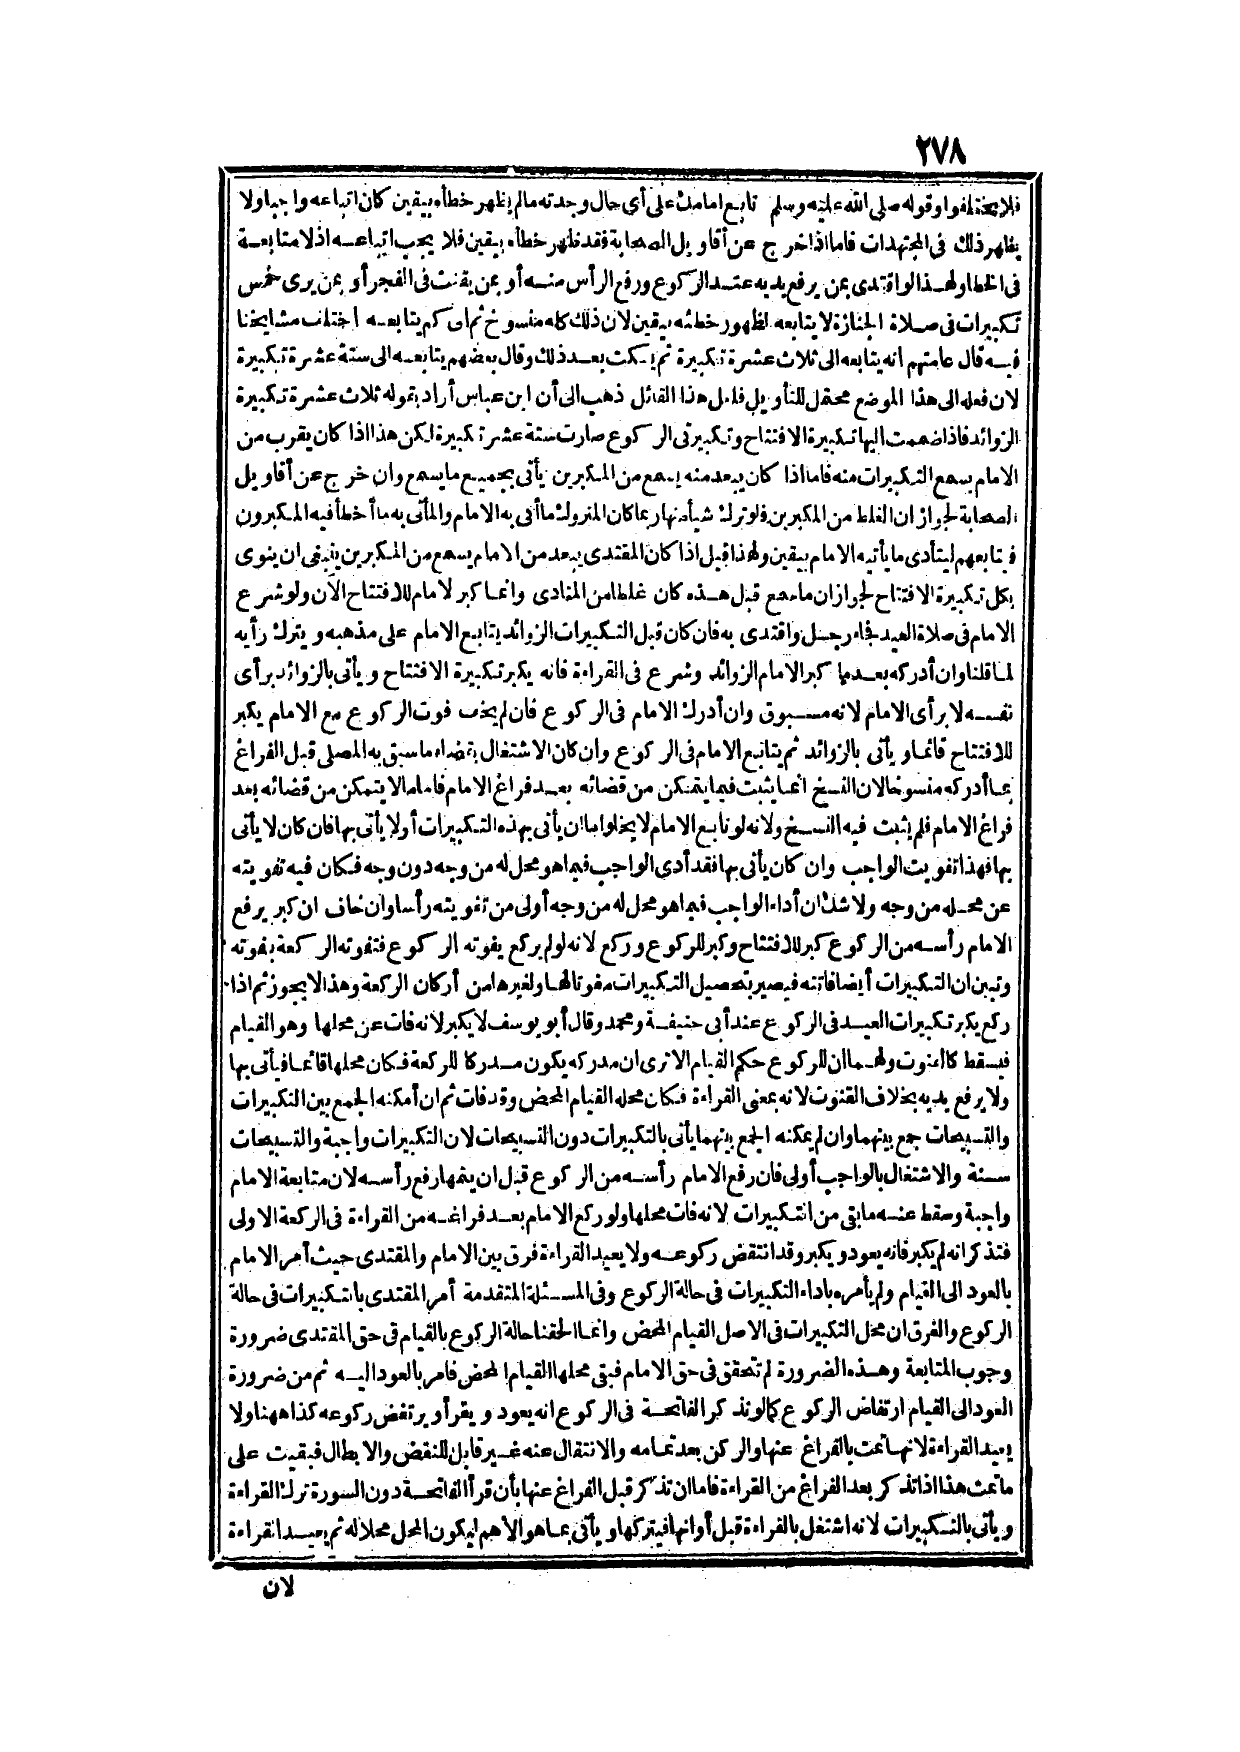 ٢٧٨
فلا تختلفوا وقوله صلى الله عليه وسلم تابع امامك على أي حال وجدته ما لم يظهر خطأه بيقين كان اتباعه واجبا ولا
يظهر ذلك في المجتهدات فاما اذا خرج عن أقاويل الصحابة فقد ظهر خطأه بيقين فلا يجب اتباعه اذ لا متابعة
في الخطا ولهذا لو اقتدى بمن يرفع يديه عند الركوع ورفع الرأس منه أو بمن يقنت في الفجر أو بمن يرى خمس
تكبيرات في صلاة الجنازة لا يتابعه لظهور خطئه بيقين لان ذلك كله منسوخ ثم الى كم يتابعه اختلف مشايخنا
فيه قال عامتهم انه يتابعه الى ثلاث عشرة تكبيرة ثم يسكت بعد ذلك وقال بعضهم يتابعه الى ستة عشرة تكبيرة
لان فعله الى هذا الموضع محتمل للتأويل فلعل هذا القائل ذهب الى أن ابن عباس أراد بقوله ثلاث عشرة تكبيرة
الزوائد فاذا ضممت اليها تكبيرة الافتتاح وتكبيرتى الركوع صارت ستة عشرة تكبيرة لكن هذا اذا كان يقرب من
الامام يسمع التكبيرات منه فاما اذا كان يبعد منه يسمع من المكبرين يأتى بجميع ما يسمع وان خرج عن أقاويل
الصحابة لجواز ان الغلط من المكبرين فلو ترك شيأ منها ربما كان المتروك ما أتى به الامام والمأتى به ما أخطأ فيه المكبرون
فيتابعهم ليتأدى ما يأتيه الامام بيقين ولهذا قيل اذا كان المقتدى يبعد من الامام يسمع من المكبرين ينبغى ان ينوى
بكل تكبيرة الافتتاح لجواز ان ما سمع قبل هذه كان غلطا من المنادى وانما كبر الامام للافتتاح الآن ولو شرع
الامام فى صلاة العيد فجاء رجل واقتدى به فان كان قبل التكبيرات الزوائد يتابع الامام على مذهبه ويترك رأيه
لما قلنا وان أدركه بعدما كبر الامام الزوائد وشرع فى القراءة فانه يكبر تكبيرة الافتتاح ويأتى بالزوائد برأى
نفسه لا برأى الامام لانه مسبوق وان أدرك الامام فى الركوع فان لم يخف فوت الركوع مع الامام يكبر
للافتتاح قائما ويأتى بالزوائد ثم يتابع الامام فى الركوع وان كان الاشتغال بقضاء ما سبق به المصلى قبل الفراغ
بما أدركه منسوخا لان النسخ انما يثبت فيما يتمكن من قضائه بعد فراغ الامام فاما ما لا يتمكن من قضائه بعد
فراغ الامام فلم يثبت فيه النسخ ولانه لو تابع الامام لا يخلو اما ان يأتى بهذه التكبيرات أو لا يأتى بها فان كان لا يأتى
بها فهذا تفويت الواجب وان كان يأتى بها فقد أدى الواجب فيما هو محل له من وجه دون وجه فكان فيه تفويته
عن محله من وجه ولا شك ان أداء الواجب فيما هو محل له من وجه أولى من تفويته رأسا وان خاف ان كبر يرفع
الامام رأسه من الركوع كبر للافتتاح وكبر للركوع وركع لانه لو لم يركع يفوته الركوع فتفوته الركعة بفوته
وتبين ان التكبيرات أيضا فاتته فيصير بتحصيل التكبيرات مفوتا لها ولغيرها من أركان الركعة وهذا لا يجوز ثم اذا
ركع يكبر تكبيرات العيد فى الركوع عند أبى حنيفة ومحمد وقال أبو يوسف لا يكبر لانه فات عن محلها وهو القيام
فيسقط كالقنوت ولهما ان للركوع حكم القيام الا ترى ان مدركه يكون مدركا للركعة فكان محلها قائما فيأتى بها
ولا يرفع يديه بخلاف القنوت لانه بمعنى القراءة فكان محله القيام المحض وقد فات ثم ان أمكنه الجمع بين التكبيرات
والتسبيحات جمع بينهما وان لم يمكنه الجمع بينهما يأتى بالتكبيرات دون التسبيحات لان التكبيرات واجبة والتسبيحات
سنة والاشتغال بالواجب أولى فان رفع الامام رأسه من الركوع قبل ان يتمها رفع رأسه لان متابعة الامام
واجبة وسقط عنه ما بقى من التكبيرات لانه فات محلها ولو ركع الامام بعد فراغه من القراءة فى الركعة الاولى
فتذكر انه لم يكبر فانه يعود ويكبر وقد انتقض ركوعه ولا يعيد القراءة فرق بين الامام والمقتدى حيث أمر الامام
بالعود الى القيام ولم يأمره باداء التكبيرات فى حالة الركوع وفى المسئلة المتقدمة أمر المقتدى بالتكبيرات فى حالة
الركوع والفرق ان محل التكبيرات فى الاصل القيام المحض وانما الحقنا حالة الركوع بالقيام فى حق المقتدى ضرورة
وجوب المتابعة وهذه الضرورة لم تتحقق فى حق الامام فبقى محلها القيام المحض فامر بالعود اليه ثم من ضرورة
العود الى القيام ارتفاض الركوع كما لو تذكر الفاتحة فى الركوع انه يعود ويقرأ ويرتفض ركوعه كذا ههنا ولا
يعيد القراءة لانها تمت بالفراغ عنها والركن بعد تمامه والانتقال عنه غير قابل للنقض والابطال فبقيت على
ما تمت هذا اذا تذكر بعد الفراغ من القراءة فاما ان تذكر قبل الفراغ عنها بأن قرأ الفاتحة دون السورة ترك القراءة
ويأتى بالتكبيرات لانه اشتغل بالقراءة قبل أوانها فيتركها ويأتى بما هو الاهم ليكون المحل محلا له ثم يعيد القراءة
لان